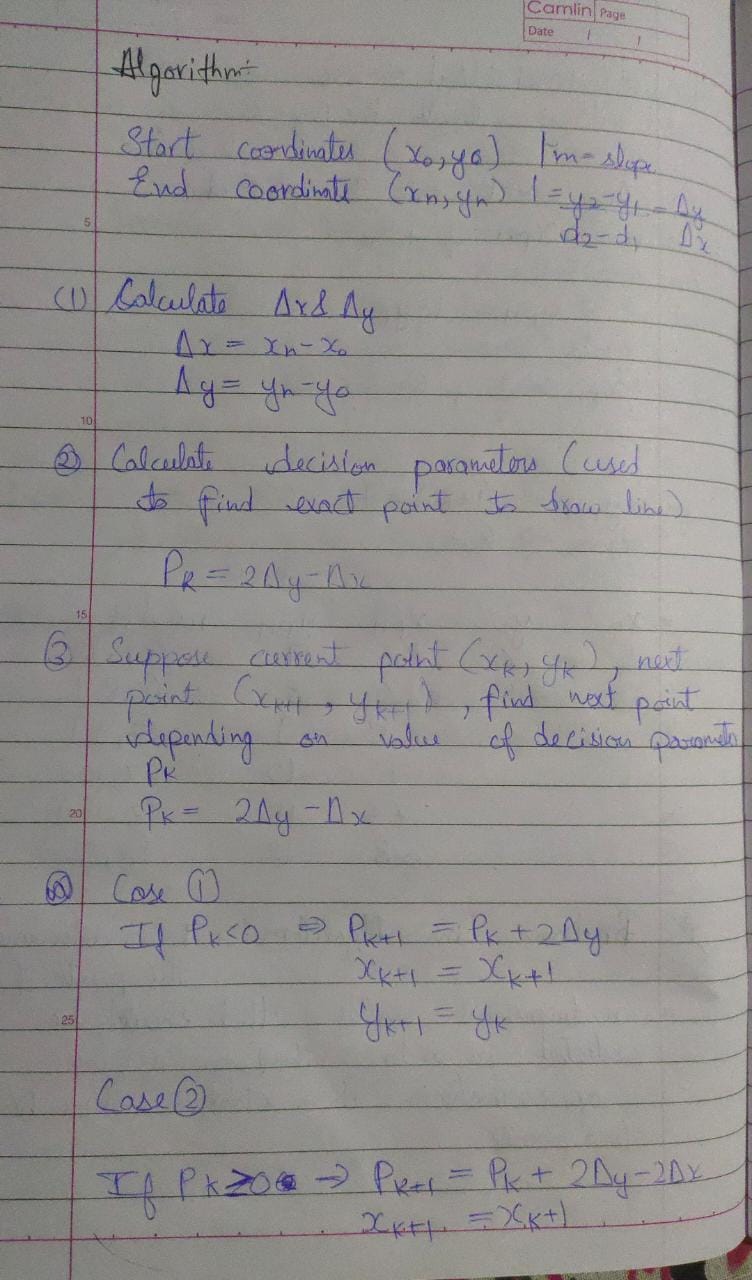 Camlin Page
Date / /
Algorithm:-
Start coordinates (x₀, y₀) | m = slope
End coordinate (xn, yn) | = y₂-y₁ = Δy
d₂-d₁ Δx
5
(1) Calculate Δx & Δy
Δx = xn - x₀
Δy = yn - y₀
10
② Calculate decision parameters (used
to find exact point to draw line)
PK = 2Δy - Δx
15
③ Suppose current point (xK, yK), next
point (xK+1, yK+1), find next point
depending on value of decision parameter
PK
20
PK = 2Δy - Δx
Case ①
If PK<0 ⇒ PK+1 = PK + 2Δy
xK+1 = xK+1
25
yK+1 = yK
Case ②
If PK≥0 → PK+1 = PK + 2Δy - 2Δx
xK+1 = xK+1